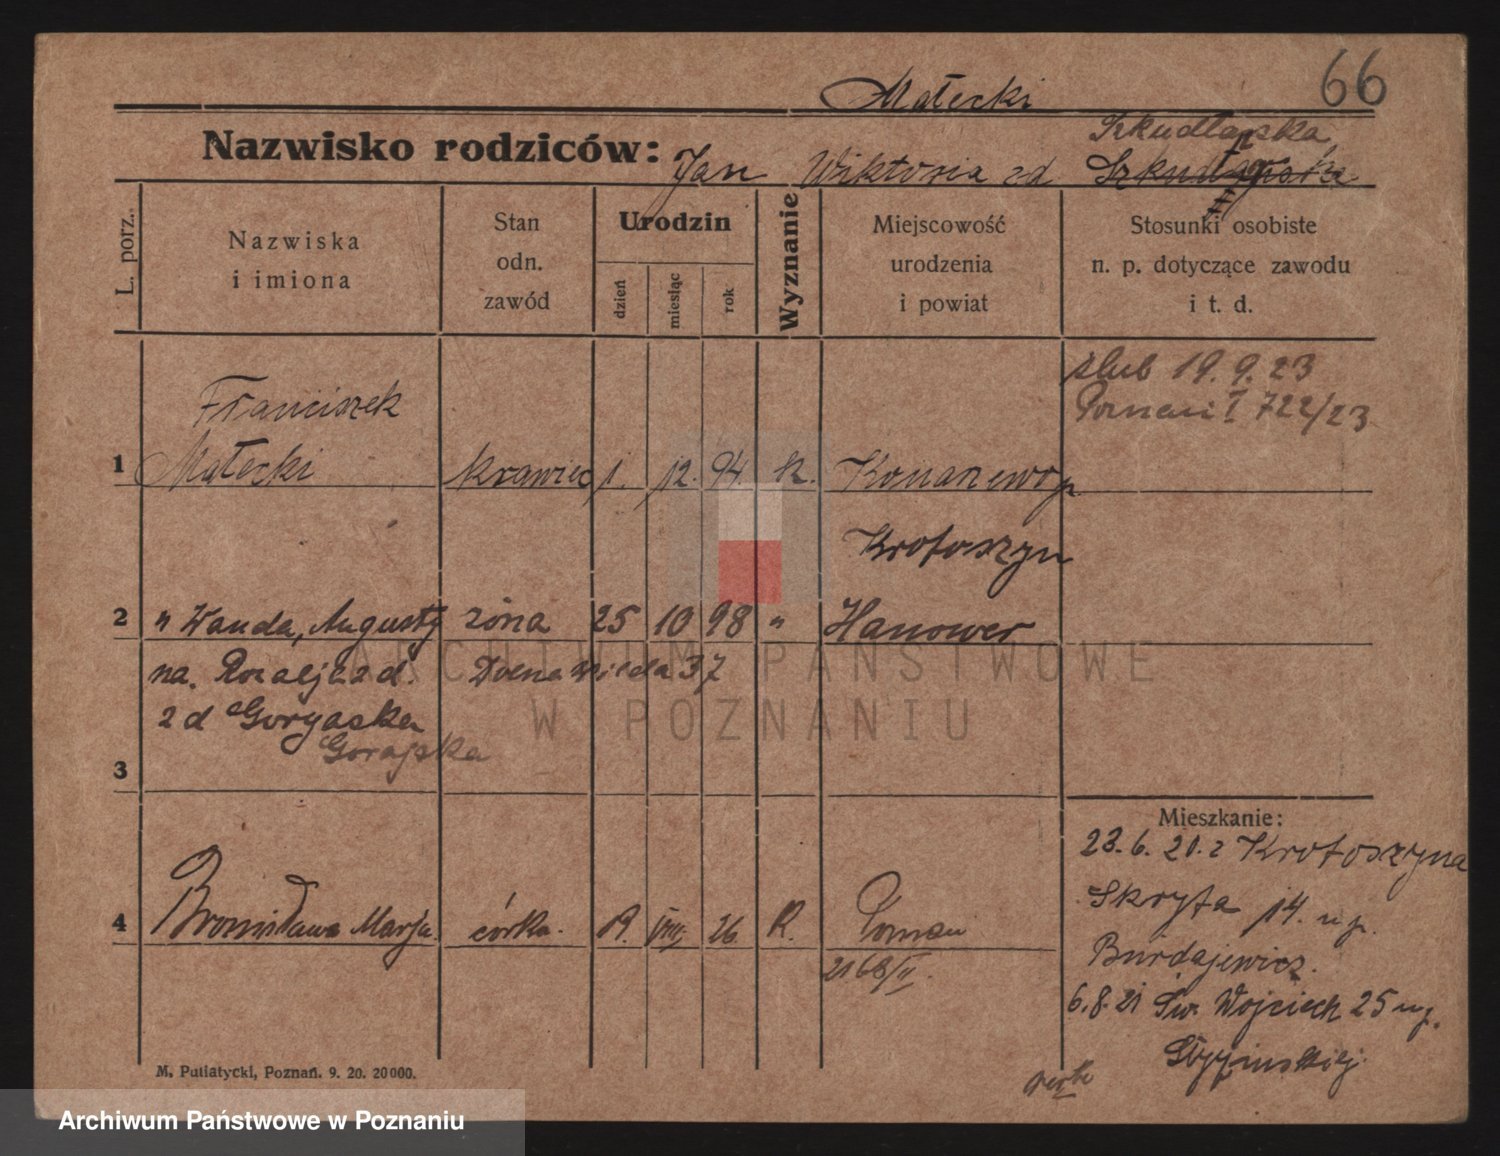 66
Małecki
Nazwisko rodziców: Jan Wiktoria zd Szkudlarska
Szkudłapska
L. porz.
Nazwiska
i imiona
Stan
odn.
zawód
Urodzin
dzień
miesiąc
rok
Wyznanie
Miejscowość
urodzenia
i powiat
Stosunki osobiste
n. p. dotyczące zawodu
i t. d.
ślub 19.9.23
Poznań I 722/23
Franciszek
1 Małecki krawiec 1. 12. 94. k. Konarzewo p.
Krotoszyn
2 " Wanda, Augusty żona 25 10 98 " Hanower
na. Rozalja zd. Dolna Wilda 37
zd Goryaska
Gorajska
3
Mieszkanie:
23.6.21. z Krotoszyna
4 Bronisława Marja córka. 19. VIII. 26 R. Poznań
Skryta 14. u p.
2168/II.
Burdajewicz.
6.8.21 Św. Wojciech 25 u p.
M. Putiatycki, Poznań. 9. 20. 20000.
ARCHIWUM PAŃSTWOWE
W POZNANIU
Archiwum Państwowe w Poznaniu